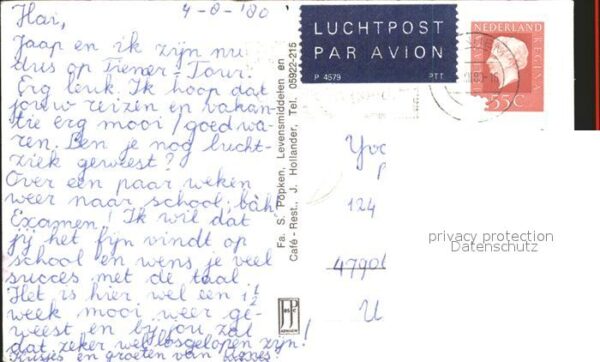 Hai,
4-8-'80
Jaap en ik zijn nu
dus op Tiener-Tour.
Erg leuk. Ik hoop dat
jouw reizen en vakan-
tie erg mooi/goed wa-
ren. Ben je nog lucht-
ziek geweest?
Over een paar weken
weer naar school, bàh
Examen! Ik wil dat
jij het fijn vindt op
school en wens je veel
succes met de taal.
Het is hier wel een 1½
week mooi weer ge-
weest en bij jou zal
dat zeker wel losgelopen zijn!
Kusjes en groeten van
LUCHTPOST
PAR AVION
P 4579 PTT
NEDERLAND
REGINA
55C
Fa. S. Popken, Levensmiddelen en
Café-Rest., J. Hollander, Tel. 05922-215
JP
Yvo
124
4790
U
privacy protection
Datenschutz